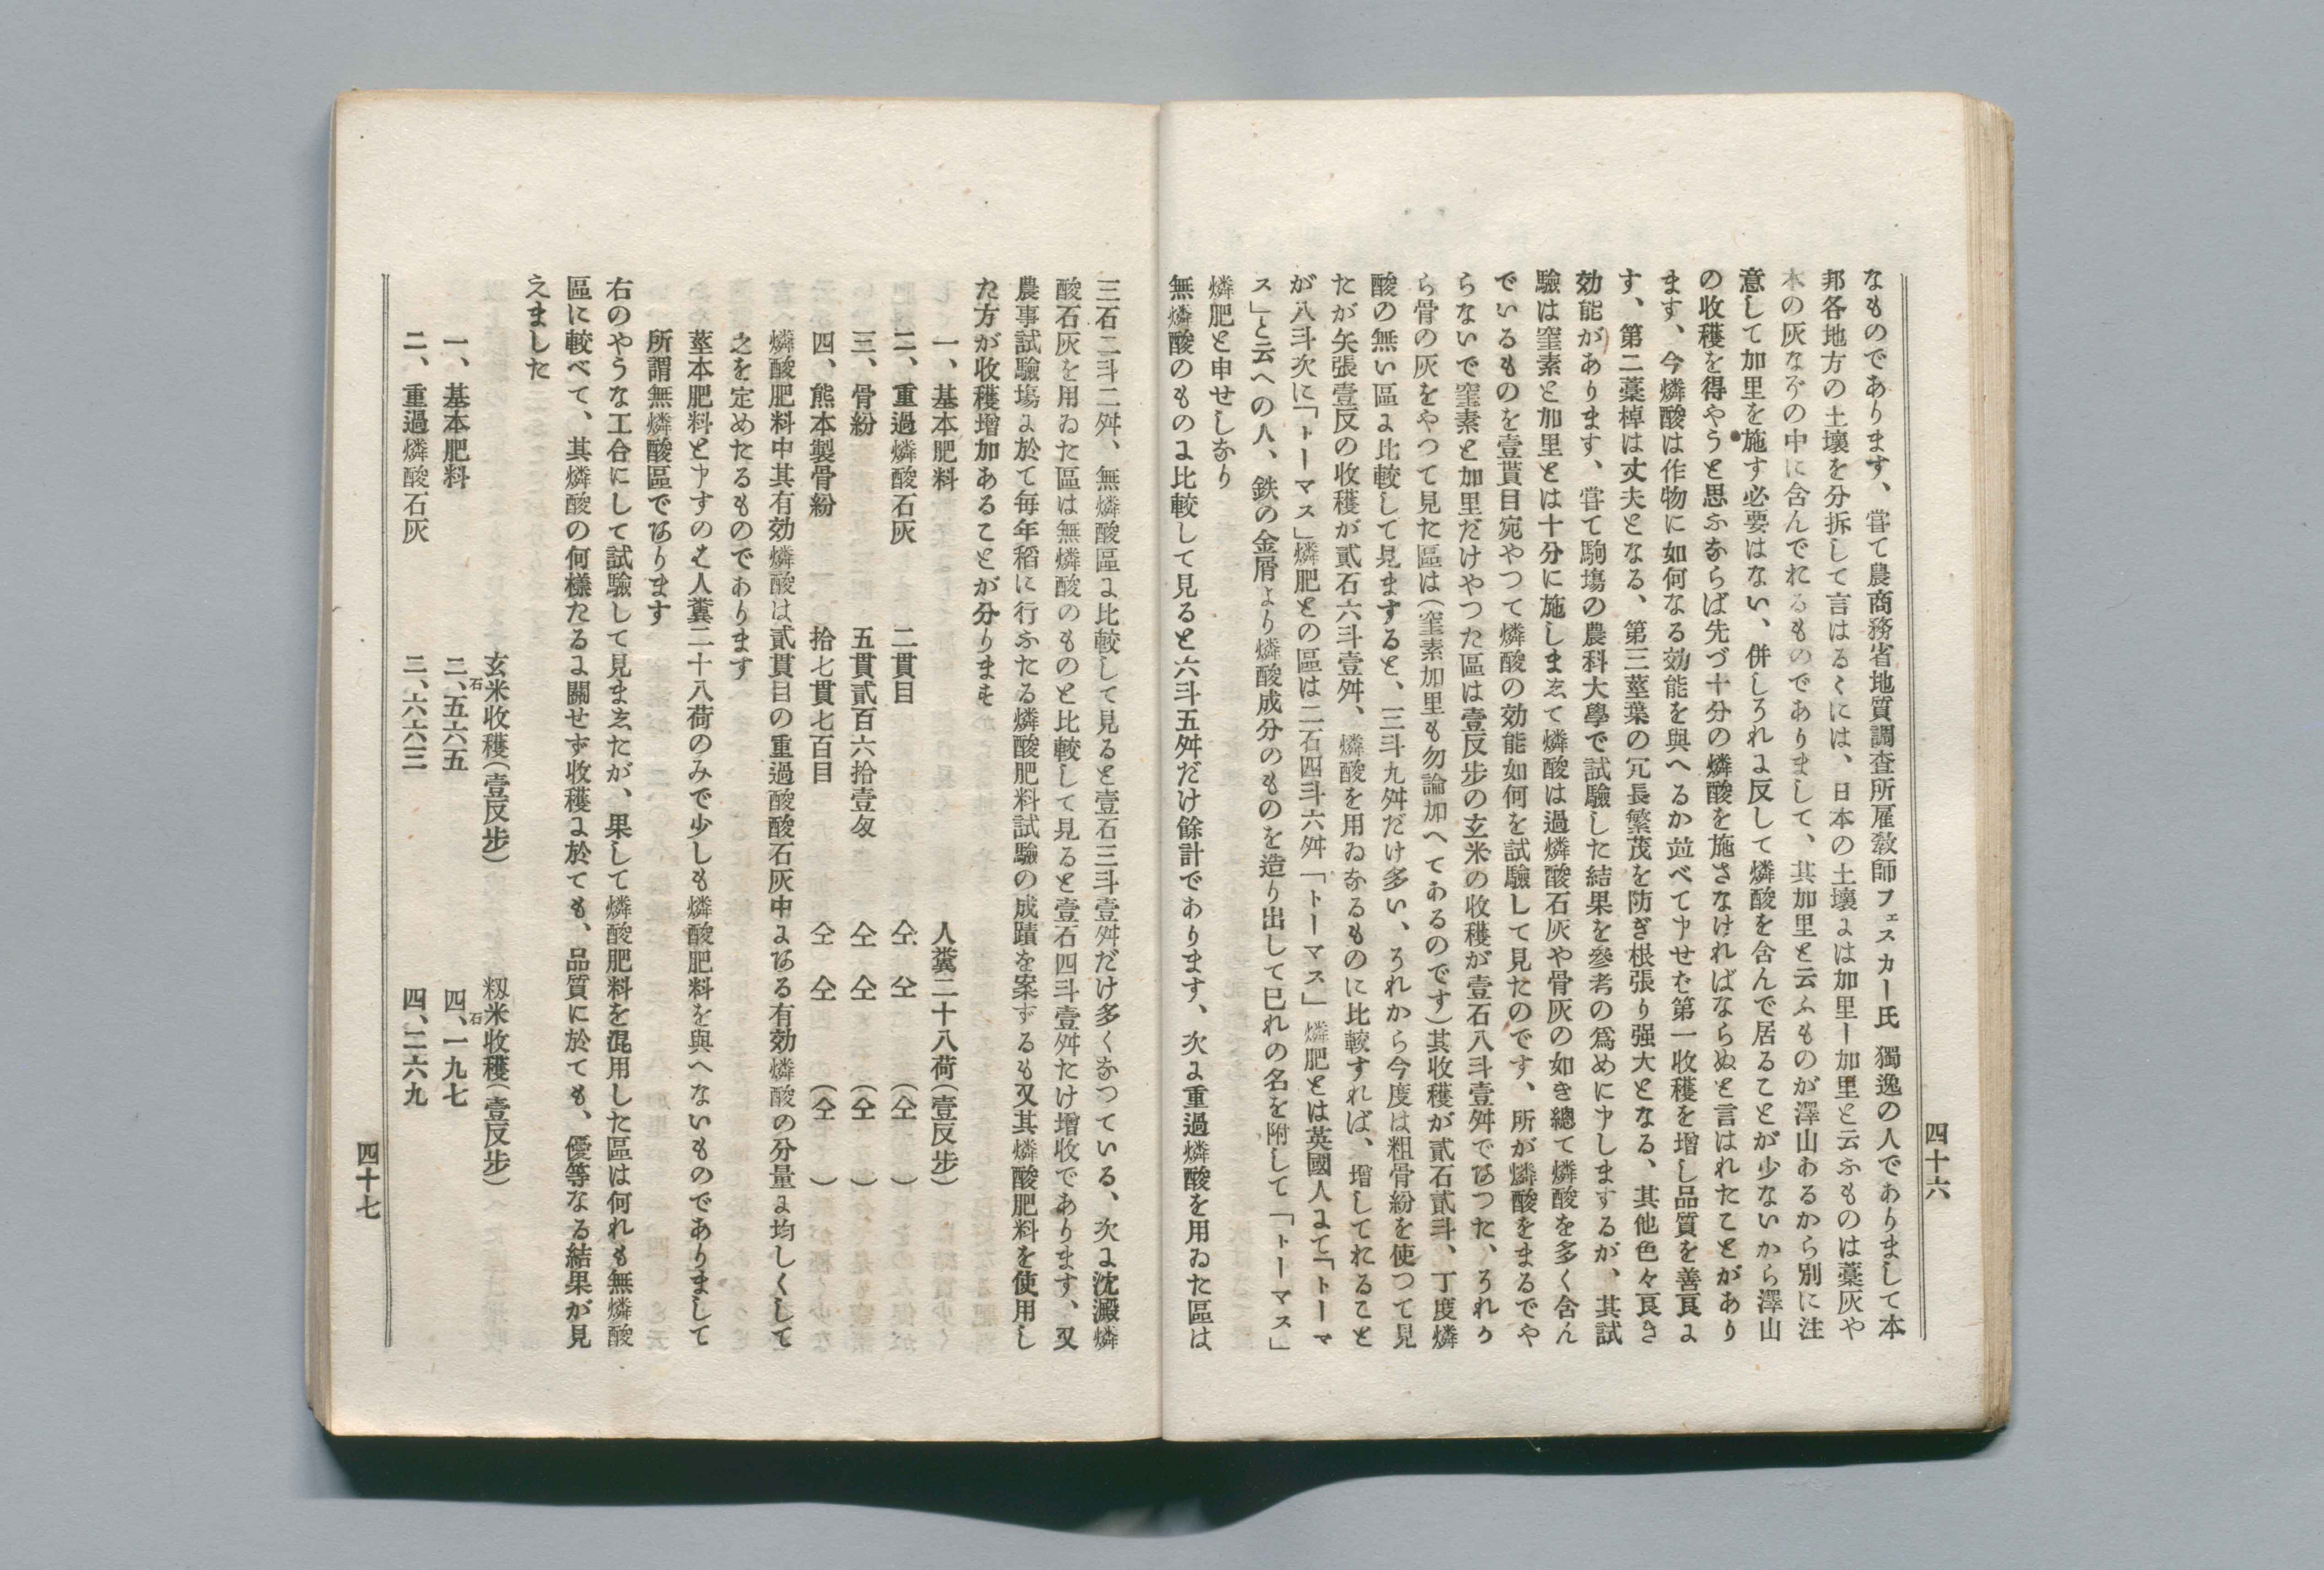 四十六
なものであります、甞て農商務省地質調査所雇敎師フェスカー氏 獨逸の人でありまして本
邦各地方の土壤を分拆して言はるゝには、日本の土壤には加里ー加里と云ふものは藁灰や
木の灰などの中に含んでれるものでありまして、其加里と云ふものが澤山あるから別に注
意して加里を施す必要はない、併しそれに反して燐酸を含んで居ることが少ないから澤山
の收穫を得やうと思ふならば先づ十分の燐酸を施さなければならぬと言はれたことがあり
ます、今燐酸は作物に如何なる効能を與へるか並べて申せば第一收穫を增し品質を善良に
す、第二藁棹は丈夫となる、第三莖葉の冗長繁茂を防ぎ根張り强大となる、其他色々良き
効能があります、甞て駒塲の農科大學で試驗した結果を參考の爲めに申しまするが、其試
驗は窒素と加里とは十分に施しまして燐酸は過燐酸石灰や骨灰の如き總て燐酸を多く含ん
でいるものを壹貫目宛やつて燐酸の効能如何を試驗して見たのです、所が燐酸をまるでや
らないで窒素と加里だけやつた區は壹反步の玄米の收穫が壹石八斗壹舛であつた、それか
ら骨の灰をやつて見た區は(窒素加里も勿論加へてあるのです)其收穫が貳石貳斗、丁度燐
酸の無い區に比較して見ますると、三斗九舛だけ多い、それから今度は粗骨紛を使つて見
たが矢張壹反の收穫が貳石六斗壹舛、燐酸を用ゐなるものに比較すれば、增してれること
が八斗次に「トーマス」燐肥との區は二石四斗六舛「トーマス」燐肥とは英國人にて「トーマ
ス」と云への人、鉄の金屑より燐酸成分のものを造り出して已れの名を附して「トーマス」
燐肥と申せしなり
無燐酸のものに比較して見ると六斗五舛だけ餘計であります、次に重過燐酸を用ゐた區は
三石二斗二舛、無燐酸區に比較して見ると壹石三斗壹舛だけ多くなつている、次に沈澱燐
酸石灰を用ゐた區は無燐酸のものと比較して見ると壹石四斗壹舛たけ增收であります、又
農事試驗塲に於て每年稻に行ふたる燐酸肥料試驗の成蹟を案ずるも又其燐酸肥料を使用し
た方が收穫增加あることが分ります
一、基本肥料 人糞二十八荷(壹反步)
二、重過燐酸石灰 二貫目 仝 仝 (仝 )
三、骨紛 五貫貳百六拾壹匁 仝 仝 (仝 )
四、熊本製骨紛 拾七貫七百目 仝 仝 (仝 )
燐酸肥料中其有効燐酸は貳貫目の重過酸酸石灰中にある有効燐酸の分量に均しくして
之を定めたるものであります
莖本肥料と申すのは人糞二十八荷のみで少しも燐酸肥料を與へないものでありまして
所謂無燐酸區であります
右のやうな工合にして試驗して見ましたが、果して燐酸肥料を混用した區は何れも無燐酸
區に較べて、其燐酸の何樣たるに關せず收穫に於ても、品質に於ても、優等なる結果が見
えました
玄米收穫(壹反步) 籾米收穫(壹反步)
一、基本肥料 二石、五六五 四石、一九七
二、重過燐酸石灰 三、六六三 四、二六九
四十七